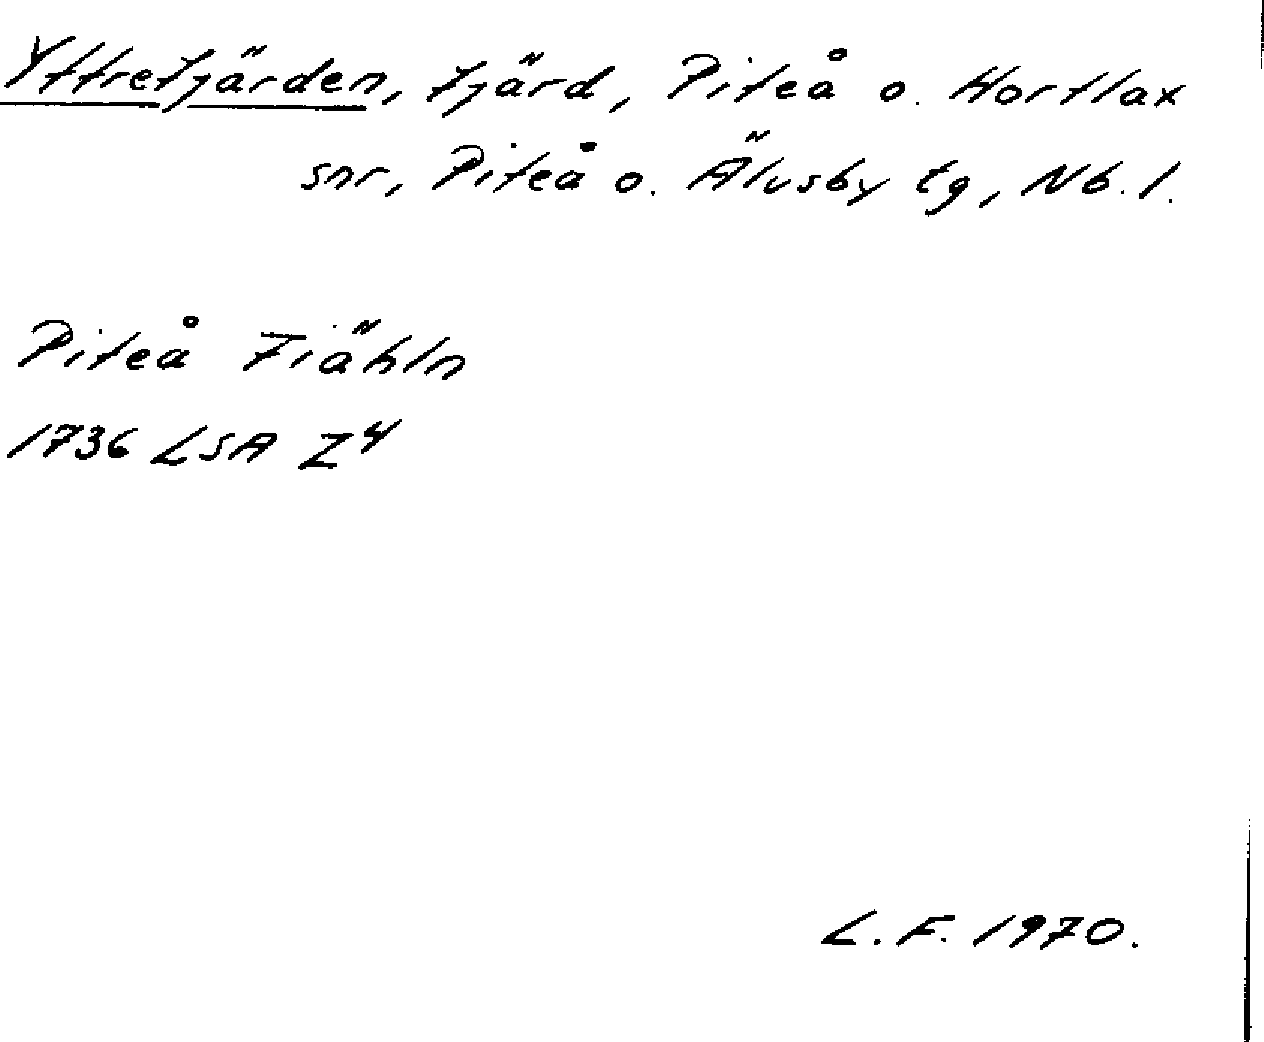 Yttrefjärden, fjärd, Piteå o. Hortlax
snr, Piteå o. Älvsby tg, Nb. l.
Piteå Fiähln
1736 LSA Z4
L. F. 1970.